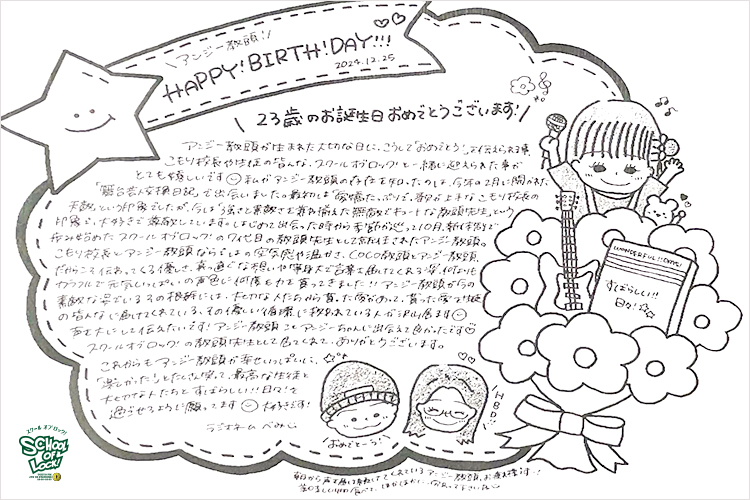 アンジー教頭!
HAPPY!BIRTH!DAY!!!
2024.12.25
23歳のお誕生日おめでとうございます!
アンジー教頭が生まれた大切な日に、こうして「おめでとう」を伝えられる事
こもり校長や生徒の皆んな、スクールオブロック!と一緒に迎えられた事が
とても嬉しいです 私がアンジー教頭の存在を知ったのは、今年の2月に開かれた
「舞台芸人交換日記」で出会いました。最初は「愛嬌たっぷりで、歌が上手なこもり校長の
という印象でしたが、今は「強さと素敵さを兼ね備えた無敵でキュートな教頭先生」という
印象で、大好きで尊敬しています。はじめて出会った時から季節が巡って10月、新体制で
歩み始めたスクールオブロック!の7代目の教頭先生として就任されたアンジー教頭。
こもり校長とアンジー教頭ならではの空気感や温かさ、COCO教頭とアンジー教頭
だからこそ伝わってくる優しさ、真っ直ぐな想いや等身大で言葉を届けてくれる姿、何よりも
カラフルで元気いっぱいの声色に何度も力を貰ってきました!!アンジー教頭からの
素敵な姿でいるその根底には、大切な人たちから貰った愛があって、貰った愛で生徒
の皆んなに届けてくれている、その優しい循環に救われている人が沢山居ます
声を大にして伝えたいです!アンジー教頭こと アンジーちゃんに出会えて良かったです
スクールオブロック!の教頭先生として居てくれて、ありがとうございます。
これからもアンジー教頭が幸せいっぱいに、
「楽しかった!」とたくさん笑って、最高な生徒と
大切な人たちとすばらしい!!日々!を
過ごせるように願ってます 大好きです!
ラジオネーム べみい
おめでとーう!
HBD!!
WONDERFUL!!DAYS!
すばらしい!!
日々!
スクール オブ ロック!
SCHOOL
OF
LOCK!